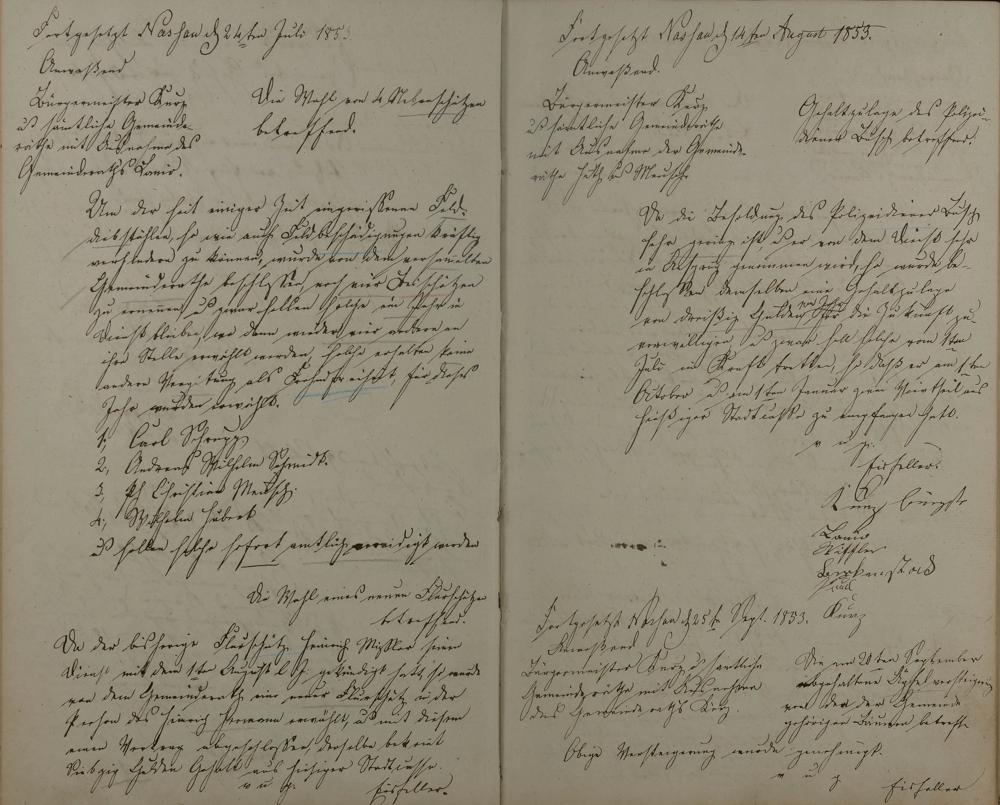 Fortgesetzt Nassau d 24ten Juli 1853
Anwesend
Bürgermeister Kurz
u sämtliche Gemeinde-
räthe mit Ausnahme des
Gemeinderaths Lanio.
Die Wahl von 4 Nebenschützen
betreffend.
Um der seit einiger Zeit eingerissenen Feld-
diebstählen, so wie auch Feldbeschädigungen kräftig
verhindern zu können, wurde von dem versammelten
Gemeinderathe beschlossen noch vier Schützen
zu ernennen u zwar sollen solche ein Jahr in
Dienst bleiben, wo dann wieder vier andere an
ihre Stelle erwählt werden, solche erhalten keine
andere Vergütung als Frohndfreiheit, für dieses
Jahr wurden erwählt.
1, Carl Schrupp
2, Andreas Wilhelm Schmidt.
3, Ph Christian Meusch.
4, Wilhelm Hubert
u sollen solche sofort amtlich vereidigt werden
Die Wahl eines neuen Flurschützen
betreffend.
Da der bisherige Flurschütz Heinrich Missler seinen
Dienst mit dem 1ten August l J. gekündigt hat, so wurde
von dem Gemeinderath ein neuer Flurschütz in der
Person des Heinrich Hermann erwählt, u mit diesem
einen Vertrag abgeschlossen, derselbe bekömt
Siebzig Gulden Gehalt aus hiesiger Stadtcasse.
v u g.
Eisfeller.
Fortgesetzt Nassau d 14ten August 1853.
Anwesend.
Bürgermeister Kurz
u sämtliche Gemeinderäthe
mit Ausnahme der Gemeinde-
räthe Huth u Meusch
Gehaltzulage des Polizei-
diener Busch betreffend.
Da die Besoldung des Polizeidiener Busch
sehr gering ist u er von dem Dienst sehr
in Anspruch genommen wird, so wurde be-
schlossen demselben eine Gehaltzulage
von dreißig Gulden pro Jahr für die Zukunft zu
verwilligen, u zwar soll solche vom 1ten
Juli in Kraft tretten, so daß er am 1ten
October u am 1ten Januar zum Viertheil aus
hiesiger Stadtcasse zu empfangen hat.
v u g.
Eisfeller.
Kurz Bürgstr
Lanio
Birkenstock
Kurz
Fortgesetzt Nassau d 25t Sept. 1853.
Anwesend
Bürgermeister Kurz u sämtliche
Gemeinderäthe mit Ausnahme
des Gemeinderaths Kurz.
Die am 20ten September
abgehaltene Äpfelversteigerung
von den der Gemeinde
gehörigen Bäumen betreffd
Obige Versteigerung wurde genehmigt.
v u g
Eisfeller